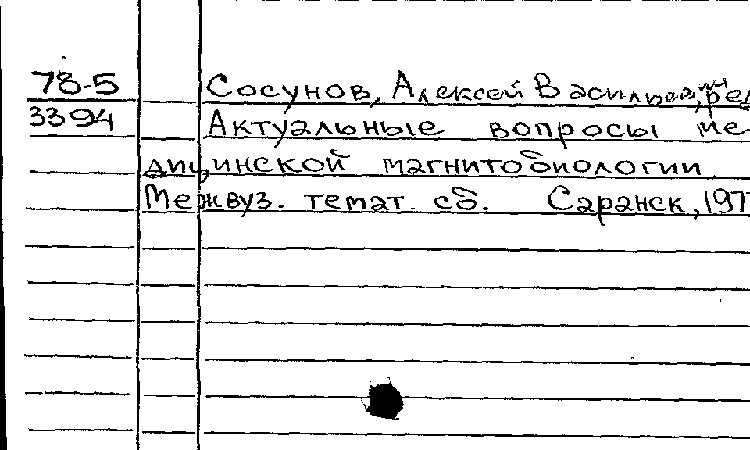 78-5 Сосунов, Алексей Васильевич, ред
3394 Актуальные вопросы ме-
дицинской магнитобиологии
Межвуз. темат. сб. Саранск, 197